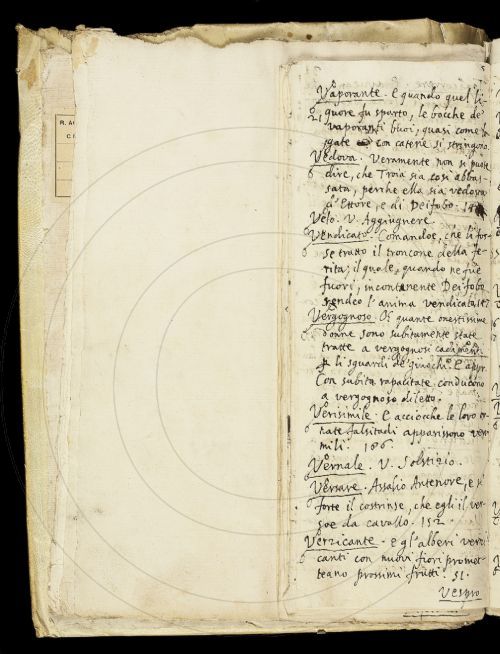 R. AC
C
Vaporante. E quando quel li-
quore fu sparto, le bocche de'
21 vaporanti buoi, quasi come le-
gate con catene si stringono
Vedova. Veramente non si puote
6 dire, che Troia sia così abbas-
sata, perche ella sia vedova
d'Ettore, e di Deifobo.
Velo. V. Aggiugnere.
Vendicato. Comandoe, che li fos-
6 se tratto il troncone della fe-
rita; il quale, quando ne fue
fuori, incontanente Deifobo
rendeo l'anima vendicata.
Vergognoso. O quante onestissime
6 donne sono subitamente state
tratte a vergognosi cadimenti
li sguardi de' giuochi. E appr.
Con subita rapacitate conducono
a vergognoso diletto.
Verisimile. E acciocche le loro or-
6 nate falsitadi apparissono veri-
mili. 186.
Vernale. V. Solstizio.
Versare. Assalio Antenore, e sì
6 forte il costrinse, che egli il ver-
soe da cavallo. 152.
Verzicante. e gl'alberi verzi-
6 canti con nuovi fiori promet-
teano prossimi frutti. 51.
Vespro